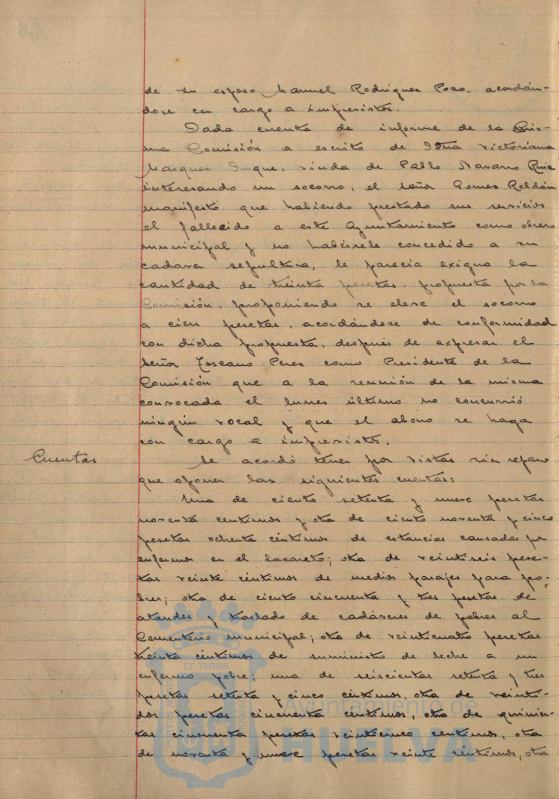 de su esposo Manuel Rodriguez Pozo, acordán-
dose con cargo a imprevistos.
Dada cuenta de informe de la mis-
ma Comisión a escrito de Dña Victoriana
Marquez Duque, viuda de Pablo Navarro Ruiz
interesando un socorro, el señor Gomez Roldán
manifestó que habiendo prestado sus servicios
el fallecido a este Ayuntamiento como obrero
municipal y no habiersele concedido a su
cadaver sepultura, le parecia exigua la
cantidad de treinta pesetas propuesta por la
Comisión, proponiendo se eleve el socorro
a cien pesetas, acordándose de conformidad
con dicha propuesta, después de expresar el
señor Toscano Perez como Presidente de la
Comisión que a la reunión de la misma
convocada el lunes último no concurrió
ningún vocal y que el abono se haga
con cargo a imprevistos.
Cuentas
Se acordó tener por vistas sin reparo
que oponer las siguientes cuentas:
Una de ciento setenta y nueve pesetas
noventa centimos y otra de ciento noventa y cinco
pesetas ochenta centimos de estancias causadas por
enfermos en el Lazareto; otra de veintiseis pese-
tas veinte centimos de medios pasajes para po-
bres; otra de ciento cincuenta y tres pesetas de
ataudes y traslado de cadáveres de pobres al
Cementerio municipal; otra de veinticuatro pesetas
treinta centimos de suministro de leche a un
enfermo pobre; una de seiscientas setenta y tres
pesetas setenta y cinco centimos, otra de veinti-
dos pesetas cincuenta centimos, otra de quinien-
tas cincuenta pesetas veinticinco centimos, otra
de noventa y nueve pesetas veinte centimos, otra
Ayuntamiento de
HUELVA